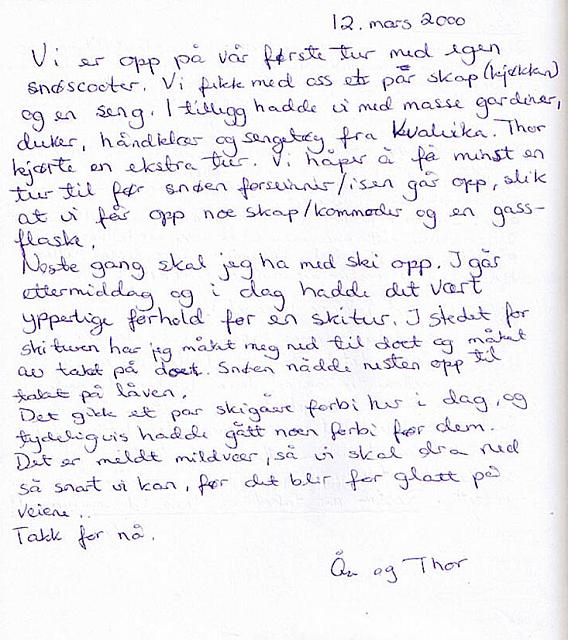 12. mars 2000
Vi er opp på vår første tur med egen
snøscooter. Vi fikk med oss et par skap (kjøkken)
og en seng. I tillegg hadde vi med masse gardiner,
duker, håndklær og sengetøy fra Kvalvika. Thor
kjørte en ekstra tur. Vi håper å få minst en
tur til før snøen forsvinner/isen går opp, slik
at vi får opp noe skap/kommoder og en gass-
flaske.
Neste gang skal jeg ha med ski opp. I går
ettermiddag og i dag hadde det vært
ypperlige forhold for en skitur. I stedet for
skituren har jeg måkt meg ned til doet og måket
av takt på doet. Snøen nådde nesten opp til
takt på låven.
Det gikk et par skigåere forbi her i dag, og
tydeligvis hadde gått noen forbi før dem.
Det er meldt mildvær, så vi skal dra ned
så snart vi kan, før det blir for glatt på
veiene..
Takk for nå.
og Thor